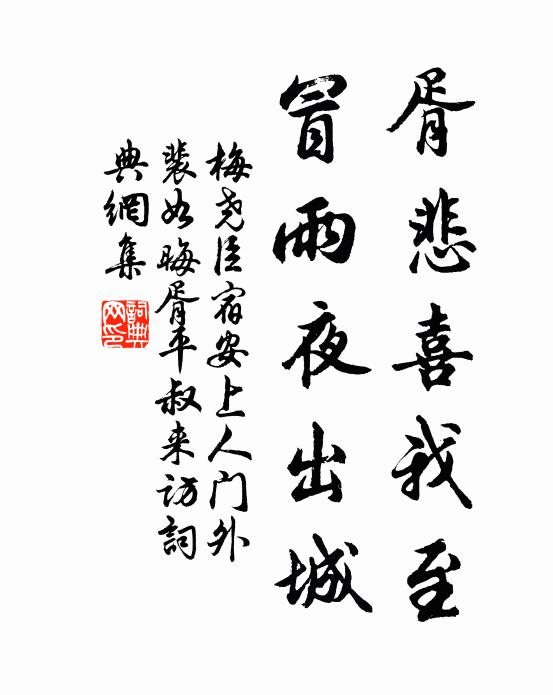 胥悲喜我至
冒雨夜出城
梅尧臣宿安上人门外
裴如晦胥平叔来访詞
典網集
詞典网印